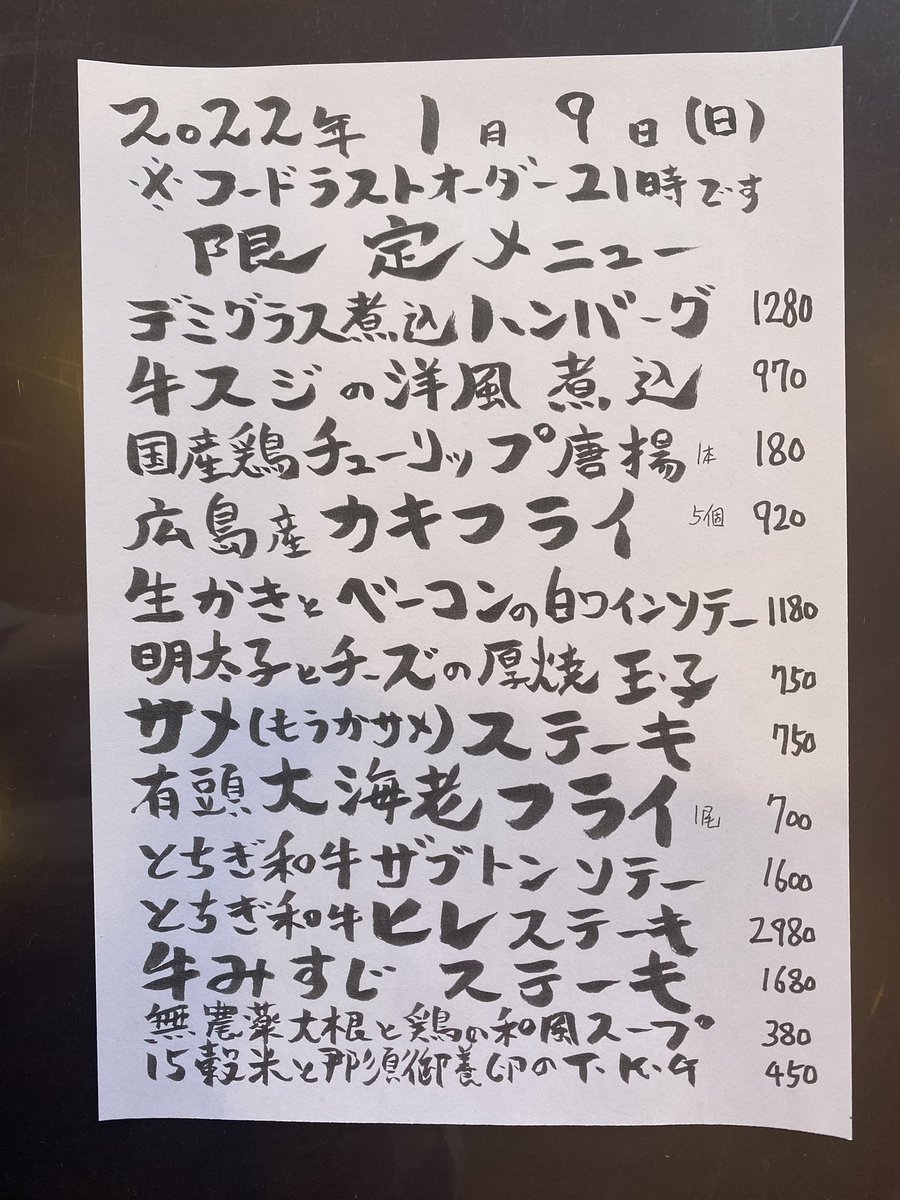 2022年 1月 9日(日)
※フードラストオーダー21時です
限定メニュー
デミグラス煮込ハンバーグ 1280
牛スジの洋風煮込 970
国産鶏チューリップ唐揚 1本 180
広島産カキフライ 5個 920
生かきとベーコンの白ワインソテー 1180
明太子とチーズの厚焼玉子 750
サメ(もうかサメ)ステーキ 750
有頭大海老フライ 1尾 700
とちぎ和牛ザブトンソテー 1600
とちぎ和牛ヒレステーキ 2980
牛みすじ ステーキ 1680
無農薬大根と鶏の和風スープ 380
15穀米と那須御養卵のT.K.G 450